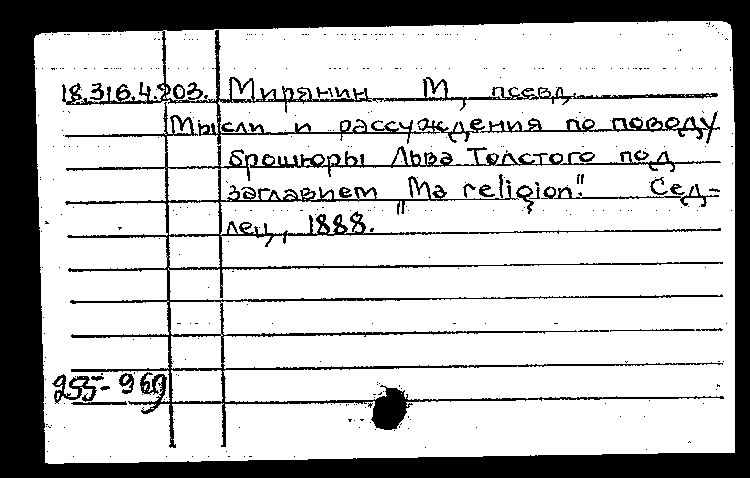 18.316.4.203. Мирянин М, псевд.
Мысли и рассуждения по поводу
брошюры Льва Толстого под
заглавием „Ma religion". Сед-
лец, 1888.
255-969